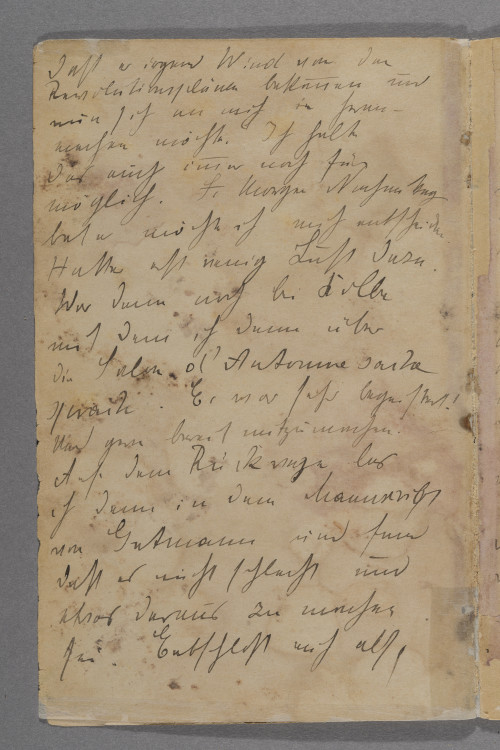 Daß er irgend Wind von den
Revolutionsplänen bekommen und
nun sich an mich
machen möchte. Ich halte
das auch immer noch für
möglich. Morgen Nachmittag
möchte ich mich entscheiden.
Hatte erst wenig Lust dazu.
War dann noch bei Kolbe
mit dem ich dann über
die Salon d'Automne sache
sprach. Er war sehr begeistert!
Und gern bereit mitzumachen.
Auf dem Rückwege las
ich dann in dem Manuscript
von Gutmann und fand
daß es nicht schlecht und
etwas daraus zu machen
sei. Entschloß mich also,